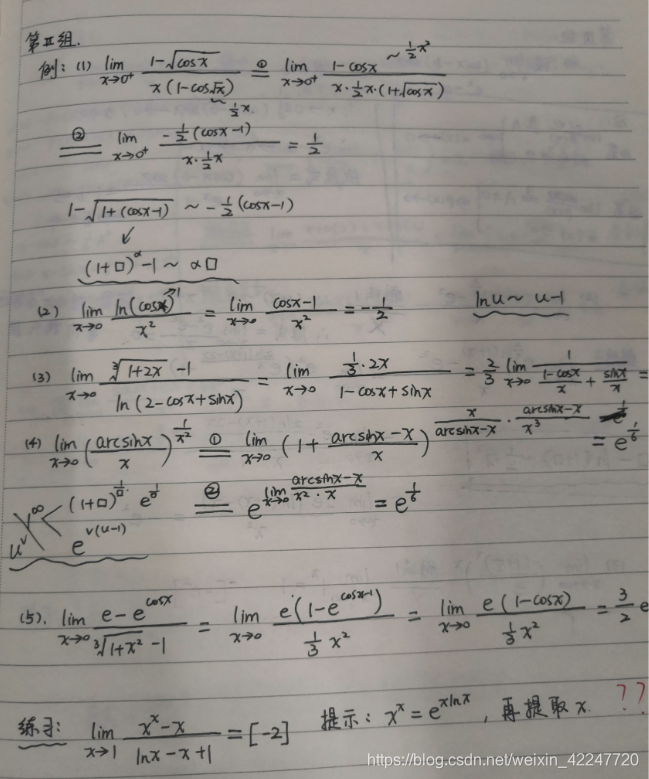 第Ⅱ组.
例: (1) lim x→0⁺ (1-√cosx)/(x(1-cos√x)) ~½x ①= lim x→0⁺ (1-cosx ~½x²)/(x·½x·(1+√cosx))
②= lim x→0⁺ (-½(cosx-1))/(x·½x) = ½
1-√(1+(cosx-1)) ~ -½(cosx-1)
↙
(1+□)^α -1 ~ α□
(2) lim x→0 ln(cosx)→1/x² = lim x→0 (cosx-1)/x² = -½ lnu ~ u-1
(3) lim x→0 (³√(1+2x) -1)/(ln(2-cosx+sinx)) = lim x→0 (⅓·2x)/(1-cosx+sinx) = ⅔ lim x→0 1/((1-cosx)/x + sinx/x) =
(4) lim x→0 (arcsinx/x)^(1/x²) ①= lim x→0 (1+(arcsinx-x)/x)^(x/(arcsinx-x) · (arcsinx-x)/x³) = e^(1/6)
u^v 1^∞ < (1+□)^(1/□) e^(v(u-1)) ②= e^(lim x→0 (arcsinx-x)/(x²·x)) = e^(1/6)
(5). lim x→0 (e-e^cosx)/(³√(1+x²) -1) = lim x→0 e(1-e^(cosx-1))/(⅓x²) = lim x→0 e(1-cosx)/(⅓x²) = 3/2 e
练习: lim x→1 (x^x-x)/(lnx-x+1) = [-2] 提示: x^x = e^(xlnx), 再提取x. ??
https://blog.csdn.net/weixin_42247720